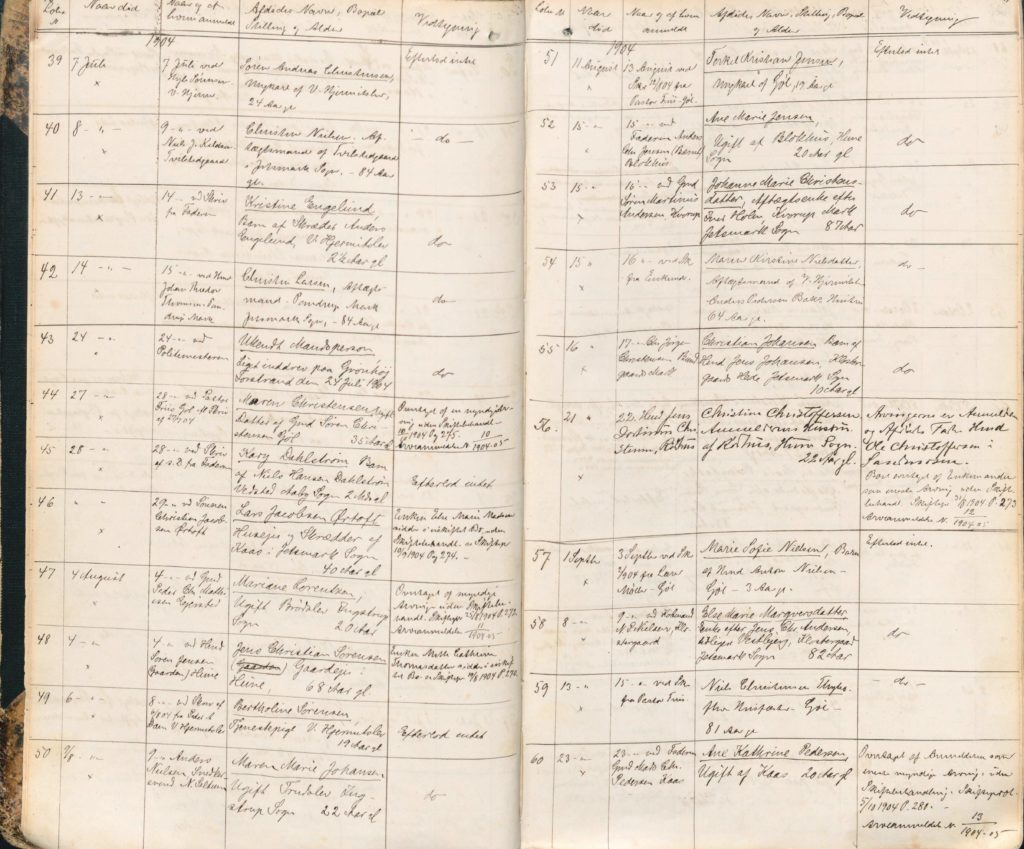 Løbe
N.
Naar død
Naar og af
hvem anmeldt
Afdødes Navn, Bopæl
Stilling og Alder
Vedtegning
1904
39
7 Juli
7 Juli ved
V. Hjerm.
Søren Andreas Christensen,
Ungkarl af V. Hjermitslev,
24 Aar gl
Efterlod intet
40
8 - " -
9 - " ved
Niels J.
Christen Nielsen, Af-
tægtsmand af Tvilstedgaard
i Jetsmark Sogn. - 84 Aar
gl.
- do -
41
13 - "
14 - ved Skriv
fra Faderen
Kristine Engelund,
Barn af Skræder Anders
Engelund, V. Hjermitslev
2½ Aar gl
do
42
14 - " -
15 - " ved
Johan Theodor
Mark
Christen Larsen, Aftægts-
mand - Pandrup Mark
Jetsmark Sogn, - 84 Aar gl
do -
43
24 - "
24 - " ved
Politimesteren
Ukendt Mandsperson
Liget inddrev paa Grønhøj
Forstrand den 24 Juli 1904
do
44
27 - "
28 - " ved Pastor
Friis Gjøl
Maren Christensen, Ugift
Datter af Gmd Søren Chri-
stensen Gjøl
35 Aar gl
Overtaget af en myndig Ar-
ving uden Skiftebehandl-
1904 Pg 275. 10
Arveanmeldels N. 1904-05
45
28 - "
28 - " ved Skriv
fra Faderen
Karg Dahlstrøm Barn
af Niels Hansen Dahlstrøm
Vedsted Aaby Sogn 2 Mdr gl
Efterlod intet
46
" - "
29 - " ved Sønnen
Christian Jacob-
sen Ørtoft
Lars Jacobsen Ørtoft
Husejer og Skrædder af
Kaas i Jetsmark Sogn
40 Aar gl
Enken Else Marie Madsen
sidder i uskiftet Bo, uden
Skiftebehandl. se Skiftepr
10/9 1904 Pg 274. -
47
4 August
4 - " ved Gmd
Peder Chr Math-
iesen
Mariane Lorentzen,
Ugift Brødslev Ingstrup
Sogn
20 Aar
Overtaget af myndige
Arvinger uden Skiftebe-
handl. Skiftepr 1904 P. 272
Arveanmeldels N. 11
1904-05
48
4 - "
4 - " ved Hmd
Søren Jensen
(Gaarden) Hune
Jens Christian Sørensen
(Gaarden) Gaardejer
Hune, 68 Aar gl.
Enken Mette Cathrine
Thomasdatter sidder i uskif-
tet Bo se Skiftepr 1904 P. 274
49
6 - "
8 - " ved Skriv
1904 fra Peder
Dam V. Hjermitslev
Bertholine Sørensen,
Tjenestepige V. Hjermitslev
19 Aar gl
Efterlod intet
50
9 - " Anders
Nielsen Smedke
svend N. Saltum
Maren Marie Johansen
Ugift Ing-
strup Sogn 22 Aar gl
do
Løbe
N
Naar
død
Naar og af hvem
anmeldt
Afdødes Navn, Stilling, Bopæl
og Alder
Vedtegning
1904
51
11 August
13 August ved
Skr 12/8 04 fra
Pastor Friis Gjøl
Terkel Kristian Jensen,
Ungkarl af Gjøl, 19 Aar gl
Efterlod intet
52
15 - "
15 - " ved
Faderen Anders
Chr Jensen
Blokhus
Ane Marie Jensen,
Ugift af Blokhus, Hune
Sogn 20 Aar gl
do
53
15 - "
15 - " ved Gmd
Søren Martinus
Andersen Kvorup
Johanne Marie Christens-
datter, Aftægtsenke efter
Jens Holm, Kvorup Mark
Jetsmark Sogn 87 Aar
do
54
15 "
16 - " ved Skr
fra Enkemd.
Maren Kirstine Nielsdatter
Aftægtsmand af V. Hjermitslev
Anders Pedersen Bak's Hustru
64 Aar gl.
do -
55
16 "
17 - " Chr Jørgen
Christensen
Christian Johansen Barn af
Hmd Jens Johansen, Kloster-
gaards Hede Jetsmark Sogn
10 Aar gl
do
56.
21 "
22. Hmd Jens
Justinus Chr-
istens, Rødhus
Christine Christoffersen
Anmelderens Hustru
af Rødhus, Hune Sogn.
22 Aar gl.
Arvingerne er Anmelderen
og Afdødes Far Hmd
Ole Christoffersen i
Boet overtaget af Enkemanden
som eneste Arving uden Skifte-
behandl. Skiftepr 31/8 1904 P. 273
Arveanmeldels N. 12
1904-05
57
1 Septbr
3 Septbr ved Skr
2/9 04 fra Lærer
Møller - Gjøl
Marie Sofie Nielsen, Barn
af Hmd Anton Nielsen -
Gjøl - 3 Aar gl.
Efterlod intet.
58
8 - "
9 - " ved
N. Mikkelsen, Klo-
stergaard
Else Marie Margversdatter
Enke efter Jens Chr Andersen
Vestbjerg, Klostergaard
Jetsmark Sogn 82 Aar
do
59
13 - "
15 - " ved Skr
fra Pastor Friis
Niels Christensen Thybo,
fhv Husfæster - Gjøl -
81 Aar gl
- do -
60
23 - "
23 - " ved Faderen
Gmd Mads Chr.
Pedersen Kaas
Ane Kathrine Pedersen
Ugift af Kaas 20 Aar gl
Overtaget af Anmelderen som
eneste myndige Arving, uden
Skiftebehandling. Skifteprot
5/10 1904 P. 280. -
Arveanmeldels N. 13
1904-05